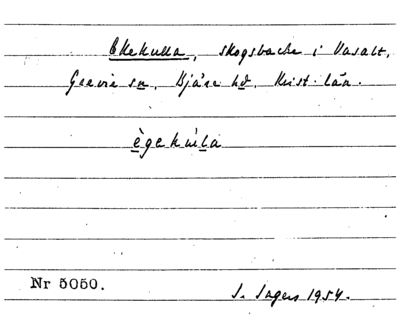 Ekekulla, skogsbacke i Vasalt,
Grevie sn, Bjäre hd, Krist. län.
ègekúla
Nr 5050.
1954.